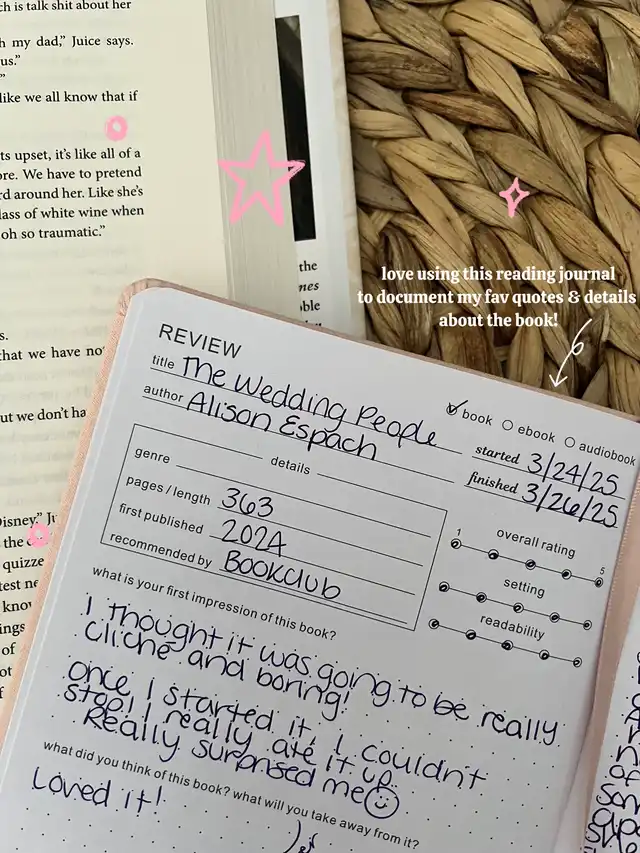 ch is talk shit about her
h my dad,” Juice says.
us.”
”
like we all know that if
ts upset, it’s like all of a
ore. We have to pretend
rd around her. Like she’s
lass of white wine when
oh so traumatic.”
the
nes
ble
love using this reading journal
to document my fav quotes & details
about the book!
s.
that we have no
ut we don’t ha
Disney,” Ju
the
quizze
test ne
know
ings
of
ot
f
REVIEW
title The Wedding People
author Alison Espach
book ebook audiobook
started 3/24/25
finished 3/26/25
details
genre
pages / length 363
first published 2024
recommended by Bookclub
overall rating
1 5
setting
readability
what is your first impression of this book?
I thought it was going to be really
cliche and boring!
Once I started it, I couldn't
stop! I really ate it up.
Really surprised me
what did you think of this book? what will you take away from it?
Loved it!